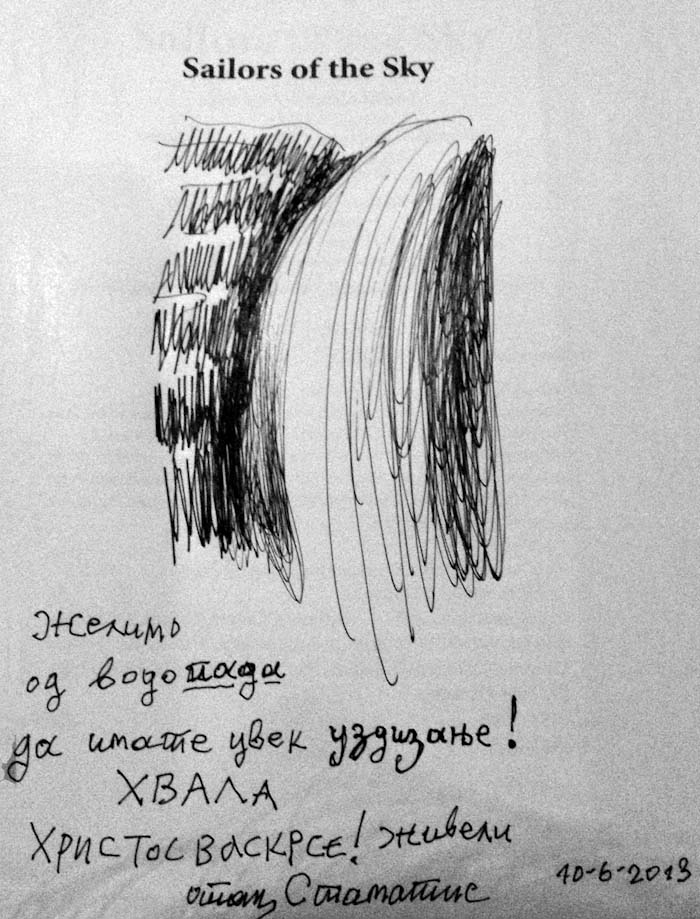 Sailors of the Sky
Желимо
од водопада
да имате увек уздизање!
ХВАЛА
ХРИСТОС ВАСКРСЕ! Живели
отац Стаматис
10-6-2013